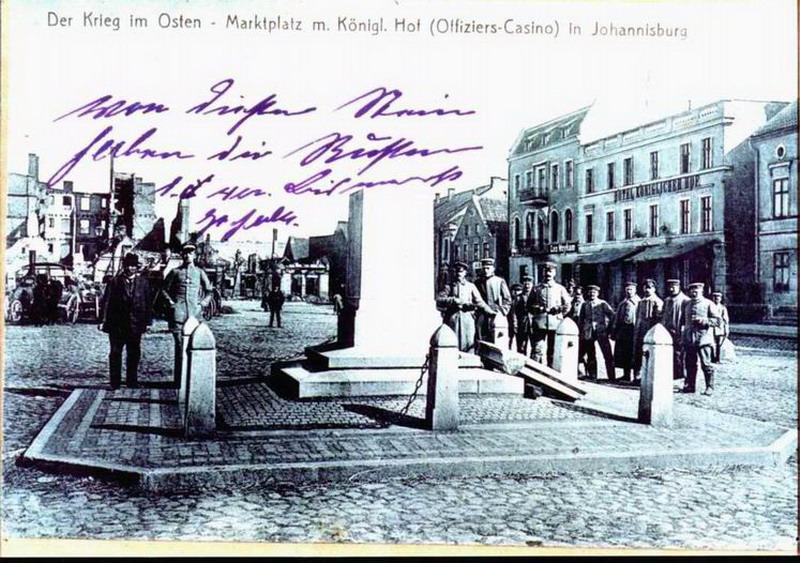 Der Krieg im Osten - Marktplatz m. Königl. Hof (Offiziers-Casino) in Johannisburg
Von diesem Stein
haben die Russen
Bismarck
HOTEL KÖNIGLICHER HOF